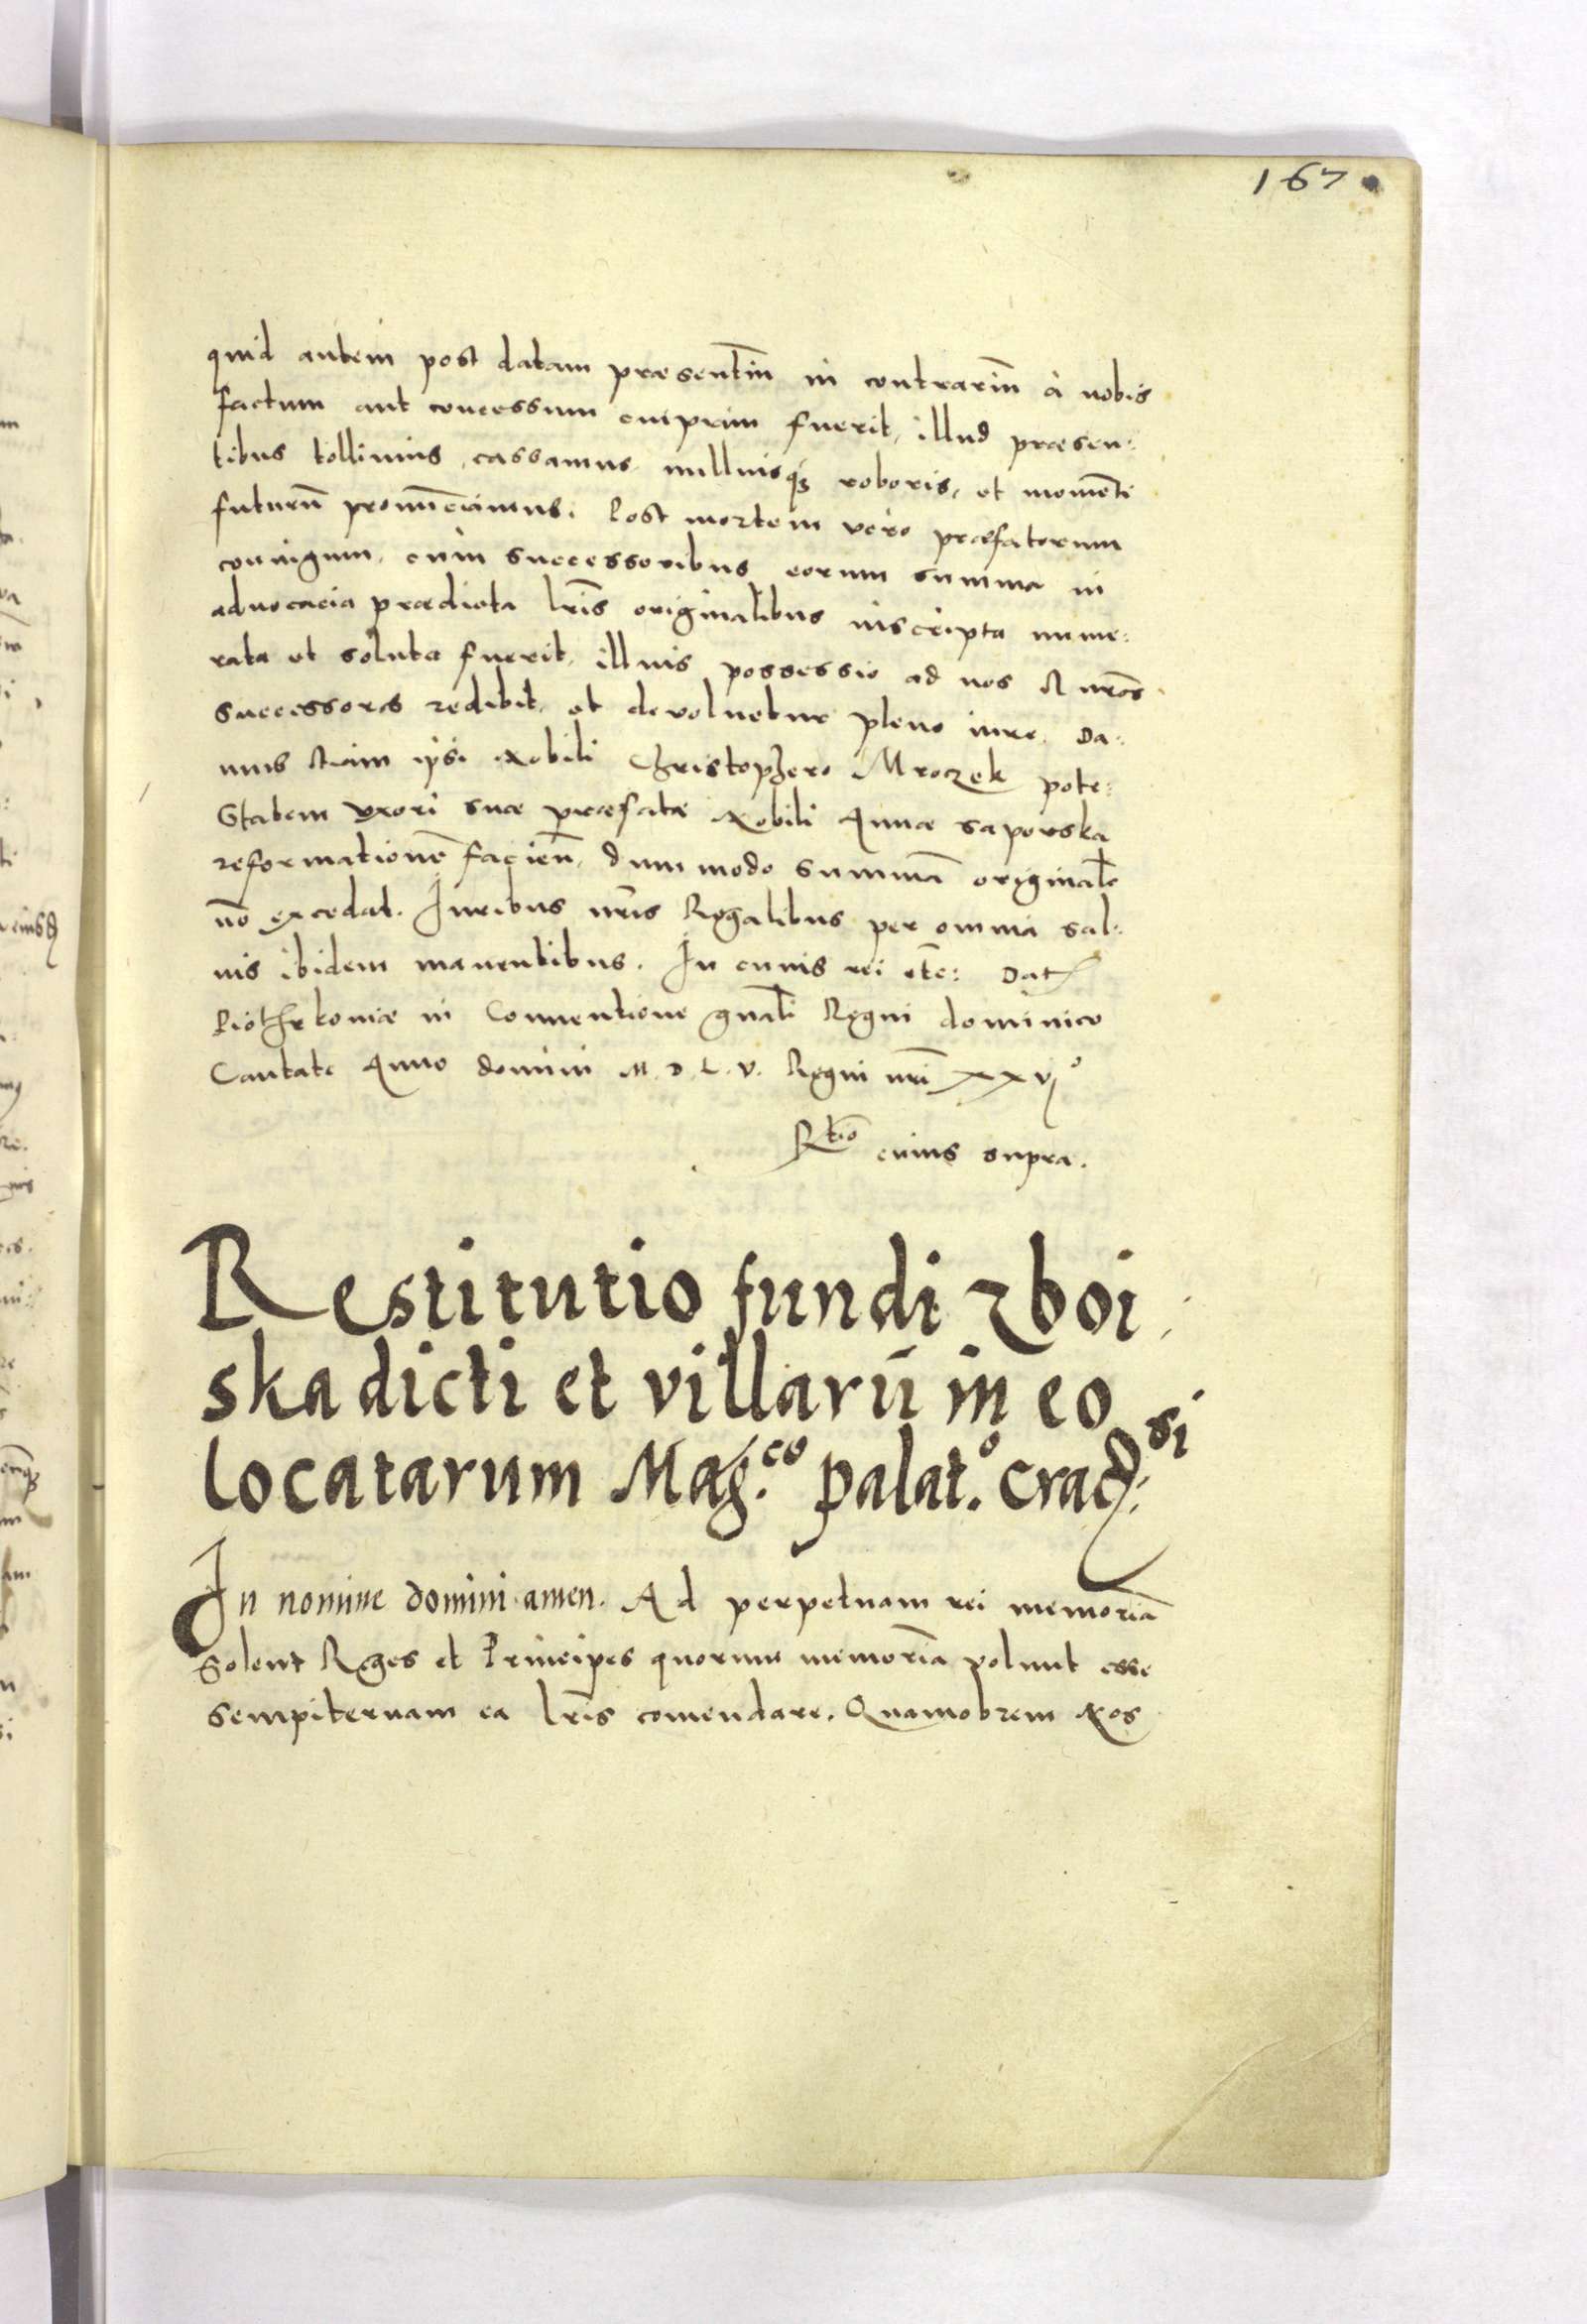 167
quid autem post datam præsentiũ in contrariũ à nobis
factum aut concessum cuipiam fuerit, illud præsen:
tibus tollimus, cassamus nulliusq́ꝫ roboris, et momenti
futurũ pronũciamus. Post mortem vero præfatorum
coniugum, cum successoribus eorum summa in
aduocacia prædicta lr̃is originalibus inscripta nume:
rata et soluta fuerit, illius possessio ad nos et nr̃os
successores redibit, et deuoluetur pleno iure. Da:
mus etiam ipsi Nobili Christophero Mroczek pote:
statem vxori suæ præfatæ Nobili Annæ saporska
reformationẽ facien̄, dummodo summã originalẽ
nõ excedat. Iuribus nr̃is Regalibus per omnia sal:
uis ibidem manentibus. In cuius rei etc: Dat
Piothrkoviæ in Conuentione gn̄ali Regni dominico
Cantate Anno domini M.D.L.V. Regni nr̃i xxvj°
Rtio cuius supra.
Restitutio fundi zboi
ska dicti et villarũ in eo
locatarum Mag.co palat.o Crac.si
In nomine domini amen. Ad perpetuam rei memoriã
Solent Reges et Principes quorum memoriã volunt esse
sempiternam ea lr̃is comendare. Quamobrem Nos